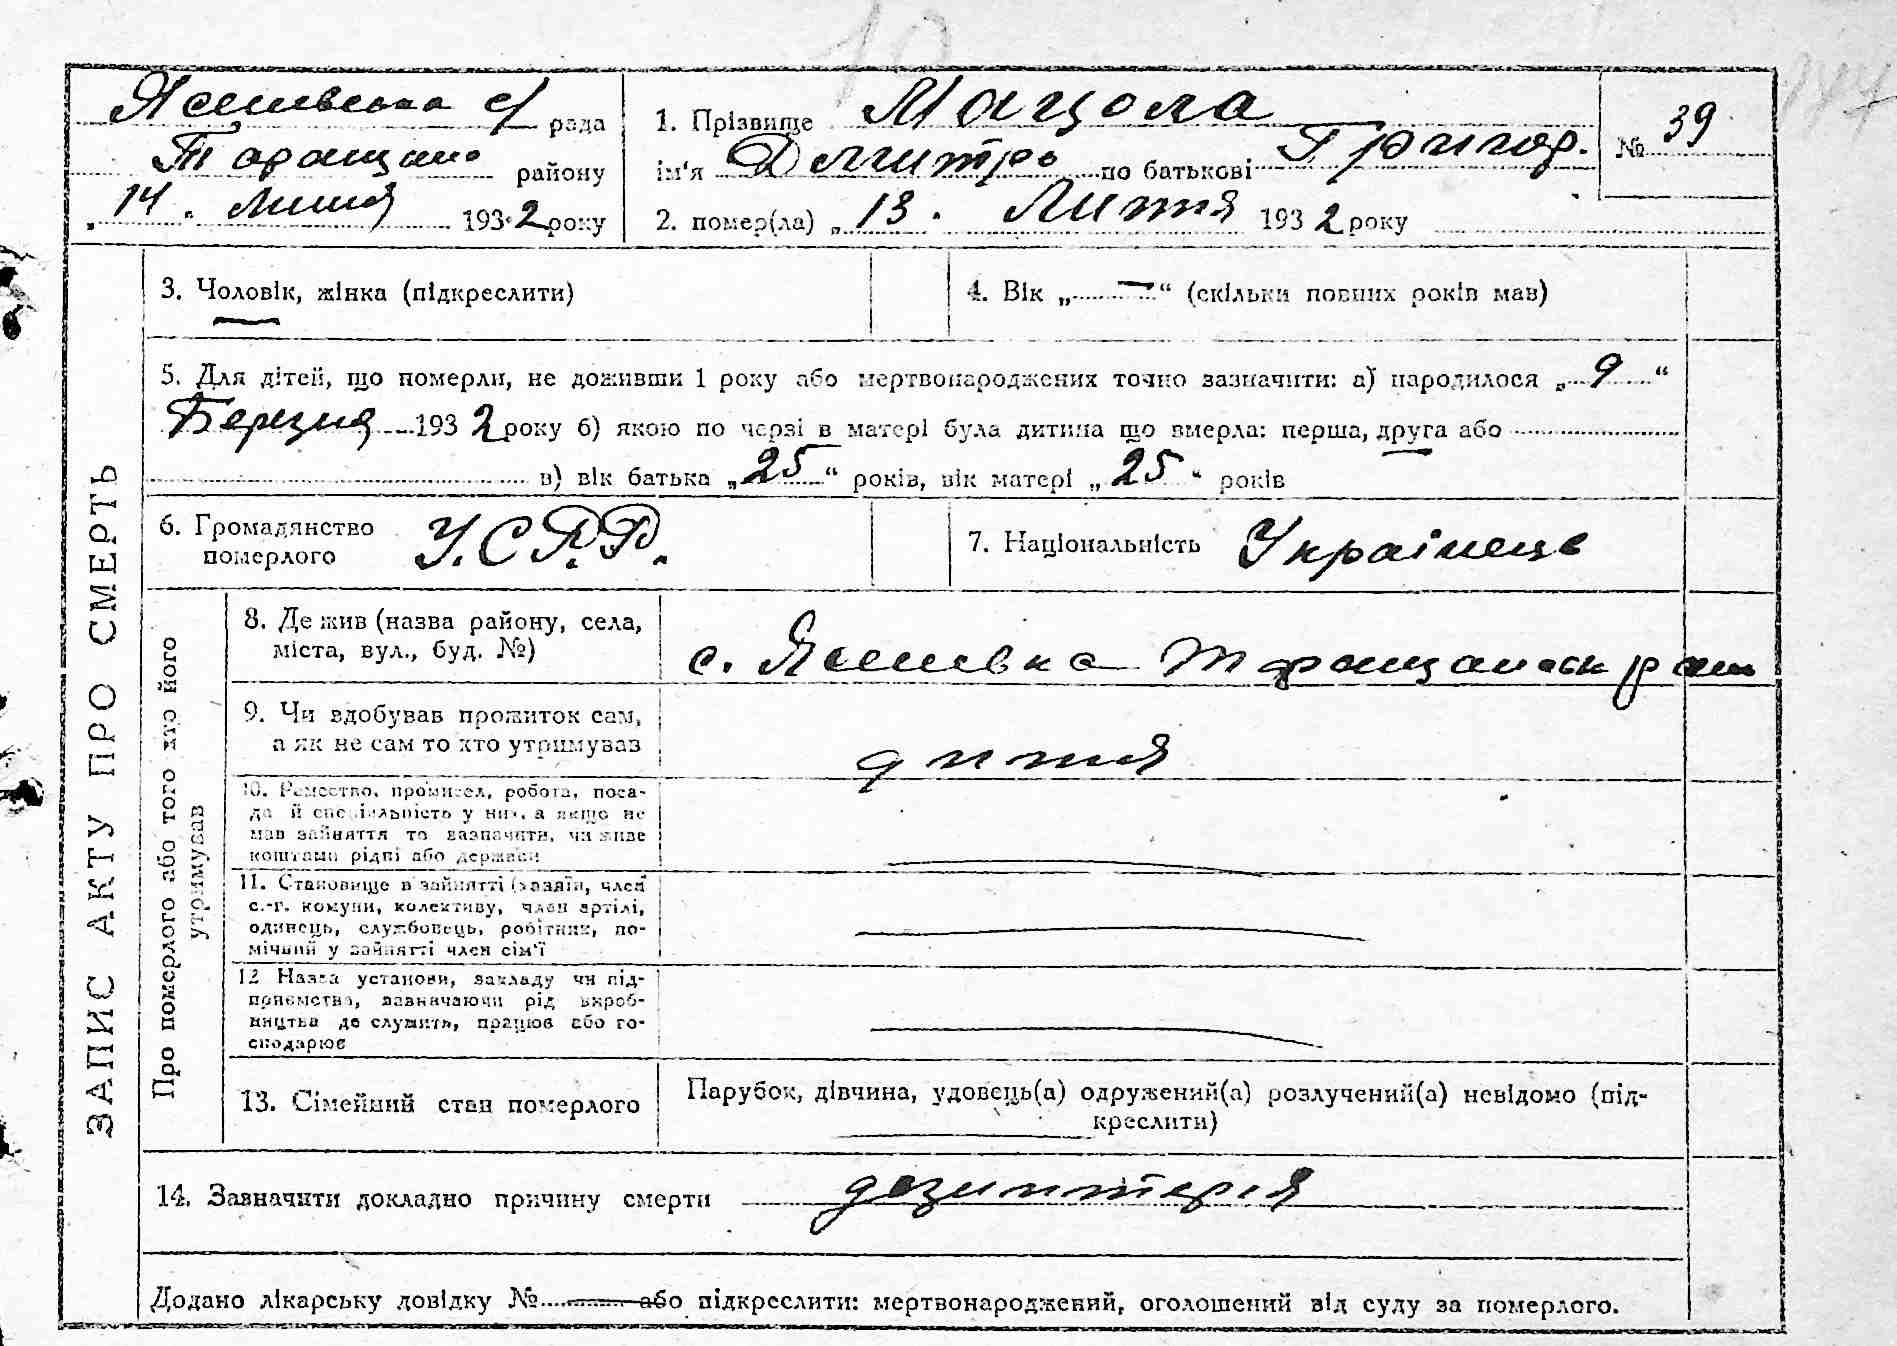 Ясенівська с/ рада
Таращан. району
„14„ липня 1932 року
1. Прізвище Мацола
ім'я Дмитро по батькові Григор.
№ 39
2. помер(ла) „13. Липня 1932 року
ЗАПИС АКТУ ПРО СМЕРТЬ
3. Чоловік, жінка (підкреслити)
4. Вік „ — “ (скільки повних років мав)
5. Для дітей, що померли, не доживши 1 року або мертвонароджених точно зазначити: а) народилося „ 9 “
Березня 1932 року б) якою по черзі в матері була дитина що вмерла: перша, друга або
в) вік батька „25“ років, вік матері „25“ років
6. Громадянство
померлого
У.С.Р.Р.
7. Національність Українець
Про померлого або того хто його
утримував
8. Де жив (назва району, села,
міста, вул., буд. №)
с. Ясенівка Таращанськ район
9. Чи здобував прожиток сам,
а як не сам то хто утримував
дитя
10. Ремество, промисел, робота, поса-
да й спеціяльність у них, а якщо не
мав зайняття то зазначити, чи живе
коштами рідні або держави
11. Становище в зайнятті (хазяїн, член
с.-г. комуни, колективу, член артілі,
одинець, службовець, робітник, по-
мічний у зайнятті член сім'ї
12 Назва установи, закладу чи під-
приємства, зазначаючи рід вироб-
ництва де служить, працює або го-
сподарює
13. Сімейний стан померлого
Парубок, дівчина, удовець(а) одружений(а) розлучений(а) невідомо (під-
креслити)
14. Зазначити докладно причину смерти дезинтерія
Додано лікарську довідку № — або підкреслити: мертвонароджений, оголошений від суду за померлого.